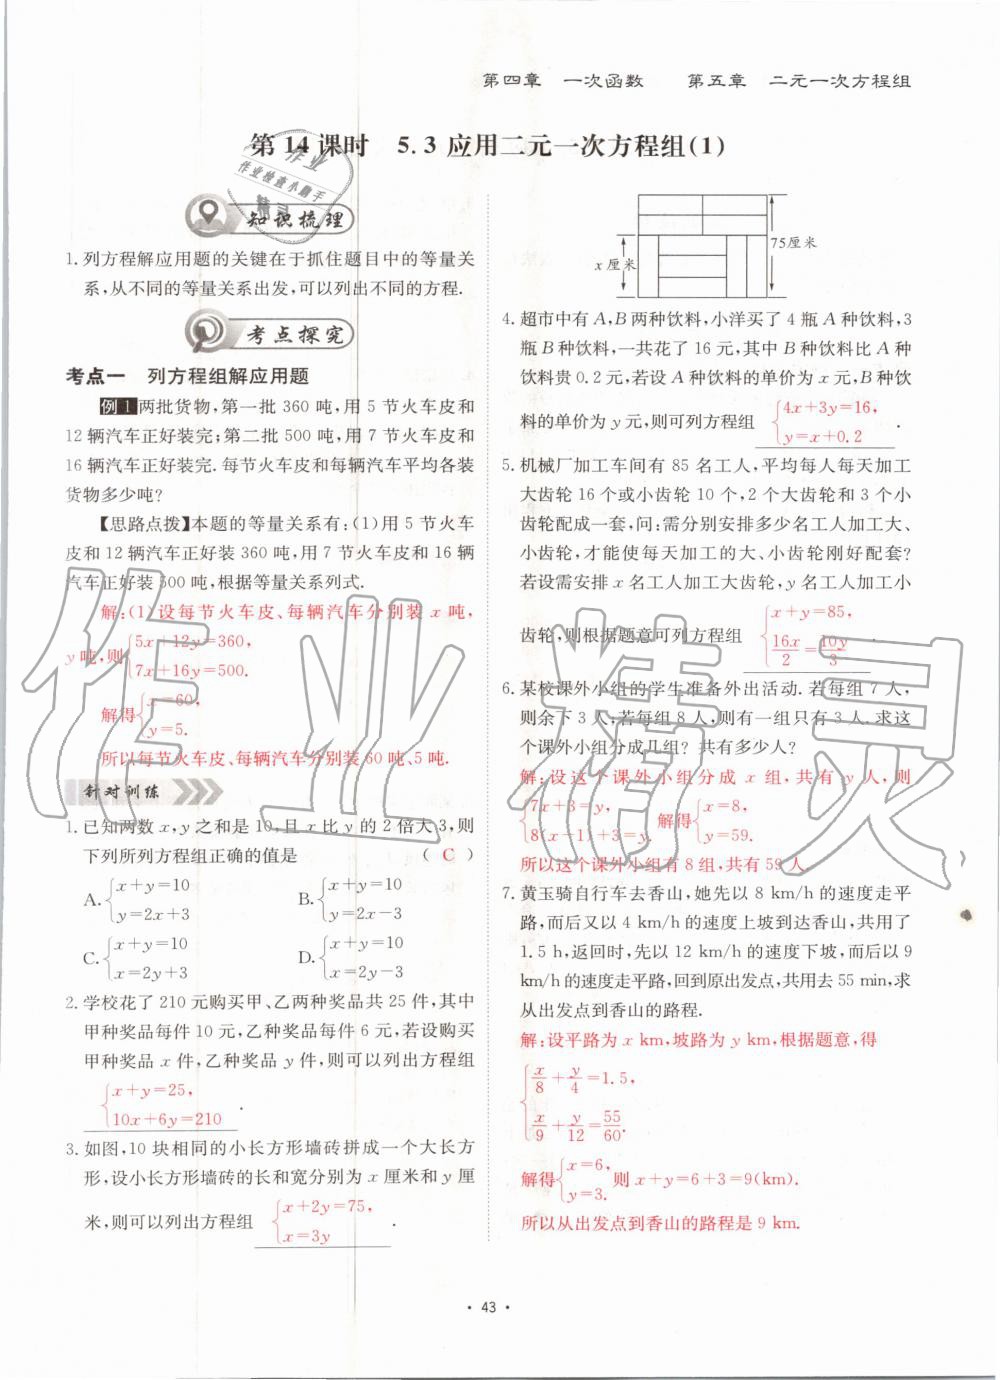 第四章　一次函数　　第五章　二元一次方程组
第14课时　5.3 应用二元一次方程组(1)
作业
作业检查小助手
精灵
知识梳理
1. 列方程解应用题的关键在于抓住题目中的等量关
系,从不同的等量关系出发,可以列出不同的方程.
考点探究
考点一　列方程组解应用题
例1 两批货物,第一批 360 吨,用 5 节火车皮和
12 辆汽车正好装完;第二批 500 吨,用 7 节火车皮和
16 辆汽车正好装完.每节火车皮和每辆汽车平均各装
货物多少吨?
【思路点拨】本题的等量关系有:(1)用 5 节火车
皮和 12 辆汽车正好装 360 吨,用 7 节火车皮和 16 辆
汽车正好装 500 吨,根据等量关系列式.
解:(1)设每节火车皮、每辆汽车分别装 x 吨,
y 吨,则{5x+12y=360,
7x+16y=500.
解得{x=60,
y=5.
所以每节火车皮、每辆汽车分别装 60 吨、5 吨.
针对训练
1. 已知两数 x,y 之和是 10,且 x 比 y 的 2 倍大 3,则
下列所列方程组正确的值是　( C )
A.{x+y=10
y=2x+3
B.{x+y=10
y=2x-3
C.{x+y=10
x=2y+3
D.{x+y=10
x=2y-3
2. 学校花了 210 元购买甲、乙两种奖品共 25 件,其中
甲种奖品每件 10 元,乙种奖品每件 6 元,若设购买
甲种奖品 x 件,乙种奖品 y 件,则可以列出方程组
{x+y=25,
10x+6y=210 .
3. 如图,10 块相同的小长方形墙砖拼成一个大长方
形,设小长方形墙砖的长和宽分别为 x 厘米和 y 厘
米,则可以列出方程组 {x+2y=75,
x=3y .
75厘米
x 厘米
4. 超市中有 A,B 两种饮料,小洋买了 4 瓶 A 种饮料,3
瓶 B 种饮料,一共花了 16 元,其中 B 种饮料比 A 种
饮料贵 0.2 元,若设 A 种饮料的单价为 x 元,B 种饮
料的单价为 y 元,则可列方程组 {4x+3y=16,
y=x+0.2 .
5. 机械厂加工车间有 85 名工人,平均每人每天加工
大齿轮 16 个或小齿轮 10 个,2 个大齿轮和 3 个小
齿轮配成一套,问:需分别安排多少名工人加工大、
小齿轮,才能使每天加工的大、小齿轮刚好配套?
若设需安排 x 名工人加工大齿轮,y 名工人加工小
齿轮,则根据题意可列方程组 {x+y=85,
16x/2=10y/3 .
6. 某校课外小组的学生准备外出活动.若每组 7 人,
则余下 3 人;若每组 8 人,则有一组只有 3 人.求这
个课外小组分成几组?共有多少人?
解:设这个课外小组分成 x 组,共有 y 人,则
{7x+3=y,
8(x-1)+3=y. 解得{x=8,
y=59.
所以这个课外小组有 8 组,共有 59 人.
7. 黄玉骑自行车去香山,她先以 8 km/h 的速度走平
路,而后又以 4 km/h 的速度上坡到达香山,共用了
1.5 h,返回时,先以 12 km/h 的速度下坡,而后以 9
km/h 的速度走平路,回到原出发点,共用去 55 min,求
从出发点到香山的路程.
解:设平路为 x km,坡路为 y km,根据题意,得
{x/8+y/4=1.5,
x/9+y/12=55/60.
解得{x=6,
y=3. 则 x+y=6+3=9(km).
所以从出发点到香山的路程是 9 km.
作业精灵
· 43 ·